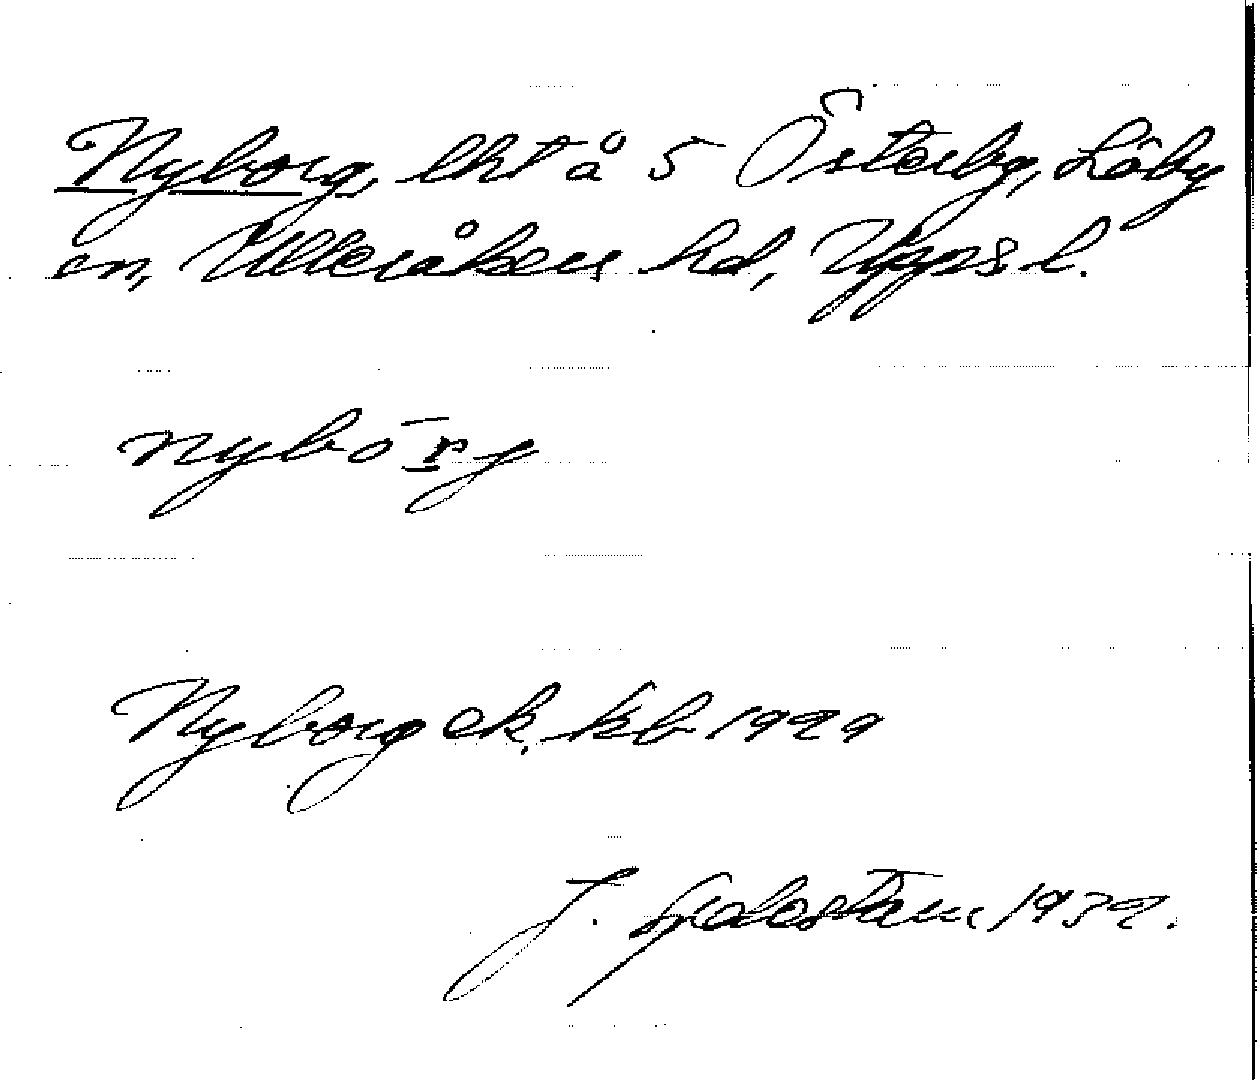 Nyborg, lht å 5 Österby, Läby
sn, Ulleråkers hd, Upps. l.
nybörj
Nyborg ek. kb 1929
J. 1939.